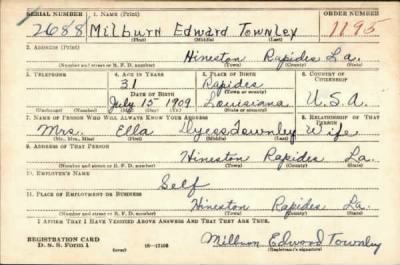 SERIAL NUMBER 1. NAME (Print) ORDER NUMBER
2688 Milburn Edward Townley 1195
(First) (Middle) (Last)
2. ADDRESS (Print)
Hineston Rapides La.
(Number and street or R. F. D. number) (Town) (County) (State)
3. TELEPHONE 4. AGE IN YEARS 5. PLACE OF BIRTH 6. COUNTRY OF CITIZENSHIP
31 Rapides
DATE OF BIRTH (Town or county)
July 15 1909 Louisiana U.S.A.
(Exchange) (Number) (Mo.) (Day) (Yr.) (State or country)
7. NAME OF PERSON WHO WILL ALWAYS KNOW YOUR ADDRESS 8. RELATIONSHIP OF THAT PERSON
Mrs. Ella Dycess Townley Wife
(Mr., Mrs., Miss) (First) (Middle) (Last)
9. ADDRESS OF THAT PERSON
Hineston Rapides La.
(Number and street or R. F. D. number) (Town) (County) (State)
10. EMPLOYER'S NAME
Self
11. PLACE OF EMPLOYMENT OR BUSINESS
Hineston Rapides La.
(Number and street or R. F. D. number) (Town) (County) (State)
I AFFIRM THAT I HAVE VERIFIED ABOVE ANSWERS AND THAT THEY ARE TRUE.
REGISTRATION CARD
D. S. S. Form 1 (over) 16-17105 Milburn Edward Townley
(Registrant's signature)